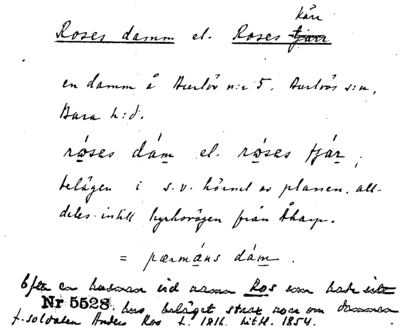 kärr
Roses damm el. Roses tjärr
en damm å Burlöv n:r 5. Burlövs s:n,
Bara h:d.
róses dám el. róses tjár,
belägen i s.v. hörnet av planen, all-
deles intill kyrkovägen från Åkarp.
= pærmáns dám.
Efter en husman vid namn Ros som hade sitt
Nr 5528 hus beläget strax norr om dammen
f. soldaten Anders Ros f. 1816 1854.